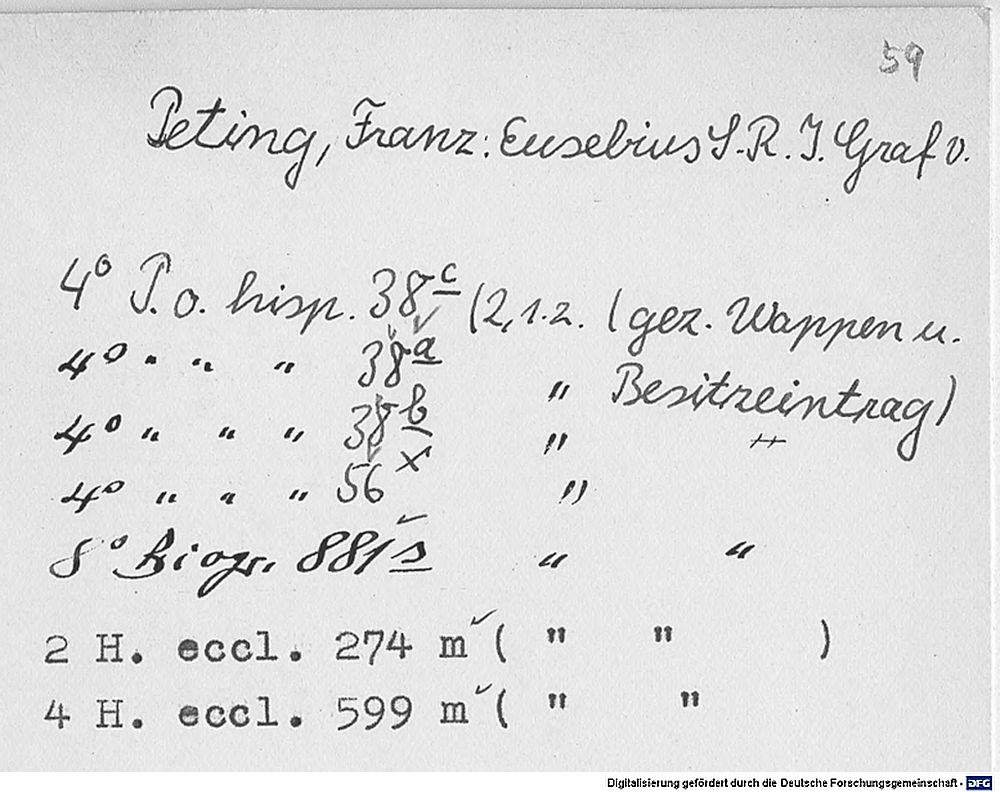 59
Peting, Franz: Eusebius S. R. I. Graf v.
4° P. o. hisp. 38 c (2, 1. z. (gez. Wappen u.
4° " " " 38 a " Besitzeintrag)
4° " " " 38 b " "
4° " " " 56 x "
8° Biogr. 881 s " "
2 H. eccl. 274 m ( " " )
4 H. eccl. 599 m ( " "
Digitalisierung gefördert durch die Deutsche Forschungsgemeinschaft - DFG